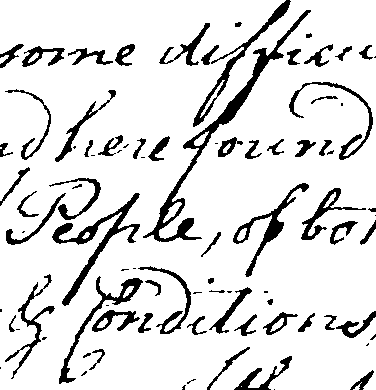 some difficu
nd here found
People, of bot
& Conditions,